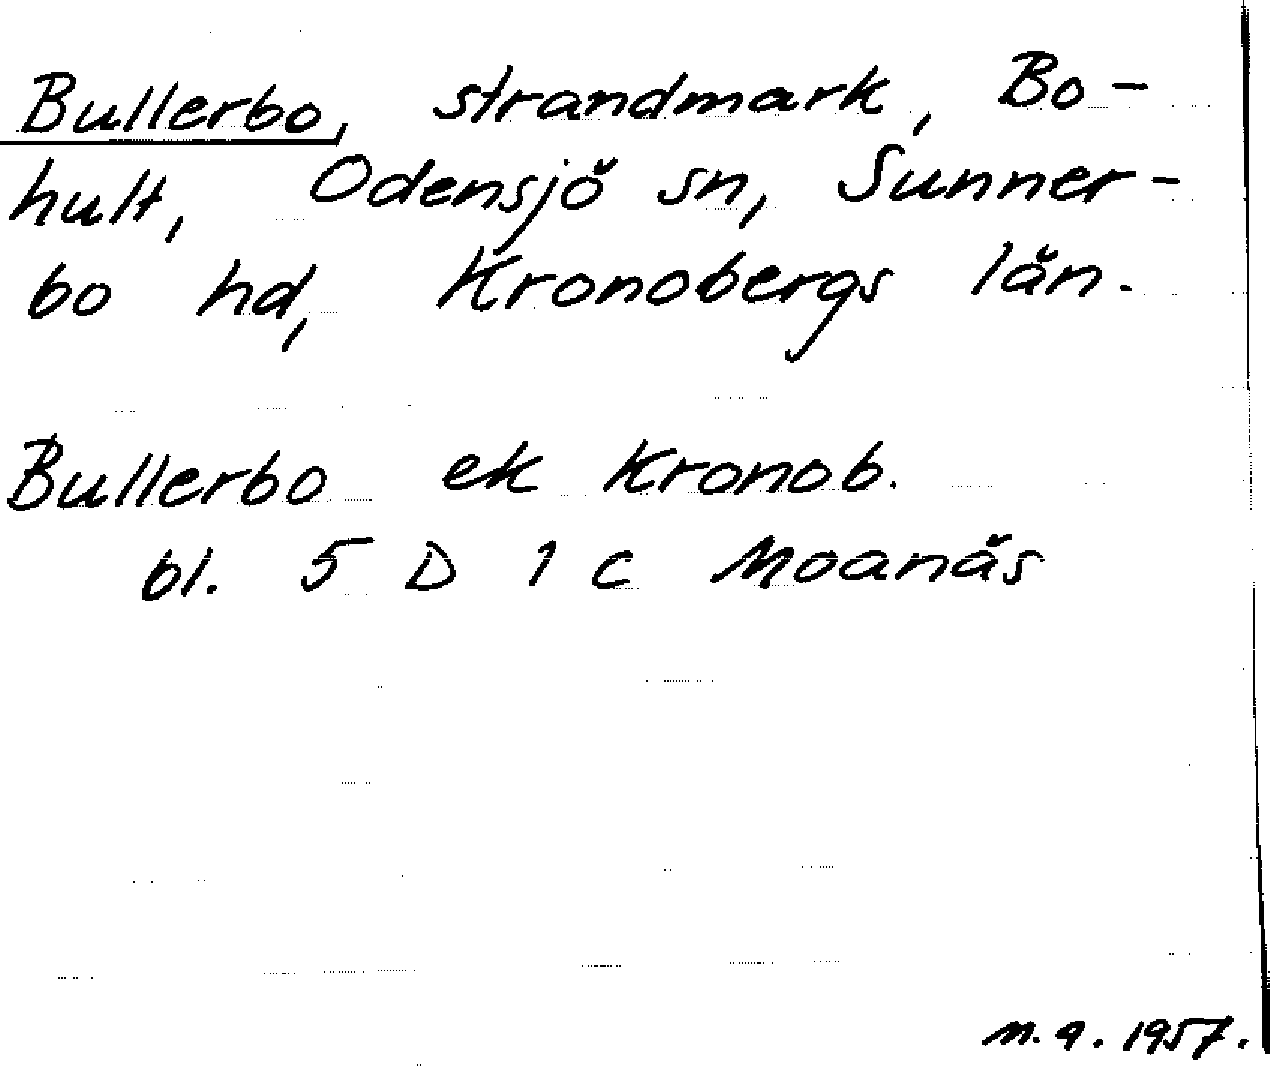 Bullerbo, strandmark, Bo-
hult, Odensjö sn, Sunner-
bo hd, Kronobergs län.
Bullerbo ek Kronob.
bl. 5 D 1 c Moanäs
n. a. 1957.